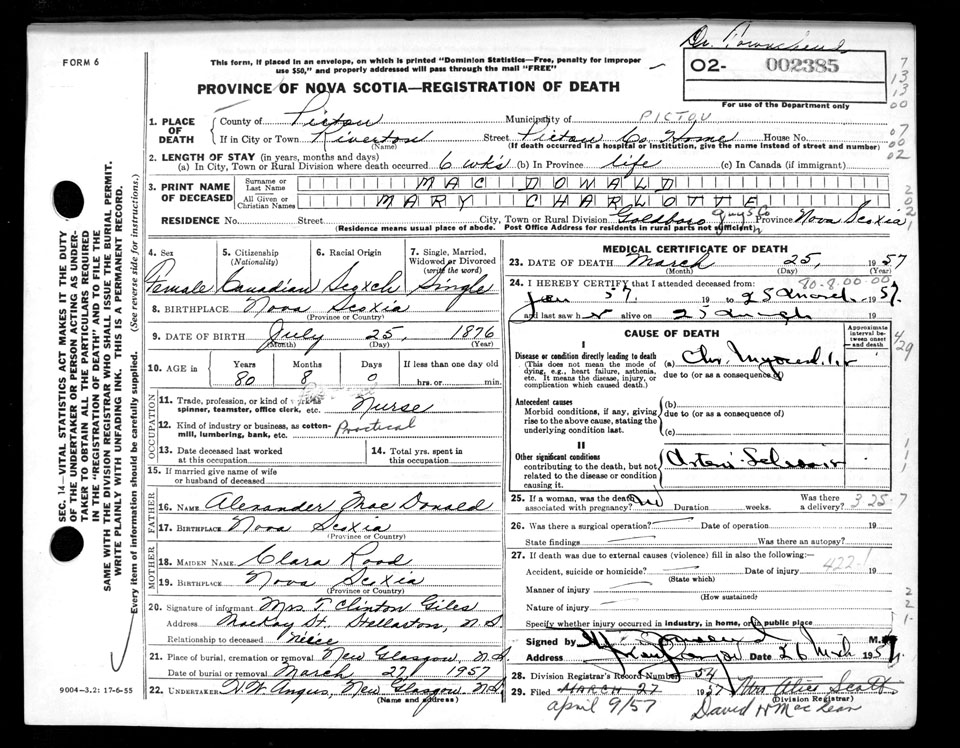 Dr. Townshend
FORM 6
This form, if placed in an envelope, on which is printed "Dominion Statistics—Free, penalty for improper
use $50," and properly addressed will pass through the mail "FREE"
O2- 002385
For use of the Department only
PROVINCE OF NOVA SCOTIA—REGISTRATION OF DEATH
1. PLACE OF DEATH
County of Pictou Municipality of PICTOU
If in City or Town Riverton (Name) Street Pictou Co. Home House No.
(If death occurred in a hospital or institution, give the name instead of street and number)
2. LENGTH OF STAY (in years, months and days)
(a) In City, Town or Rural Division where death occurred 6 wk's (b) In Province life (c) In Canada (if immigrant)
3. PRINT NAME OF DECEASED
Surname or Last Name MAC DONALD
All Given or Christian Names MARY CHARLOTTE
RESIDENCE No. Street City, Town or Rural Division Goldboro Guys Co Province Nova Scotia
(Residence means usual place of abode. Post Office Address for residents in rural parts not sufficient)
4. Sex Female
5. Citizenship (Nationality) Canadian
6. Racial Origin Scotch
7. Single, Married, Widowed or Divorced (write the word) Single
8. BIRTHPLACE Nova Scotia
(Province or Country)
9. DATE OF BIRTH July 25, 1876
(Month) (Day) (Year)
10. AGE in Years 80 Months 8 Days 0 If less than one day old hrs. or min.
OCCUPATION
11. Trade, profession, or kind of work as spinner, teamster, office clerk, etc. Nurse
12. Kind of industry or business, as cotton-mill, lumbering, bank, etc. Practical
13. Date deceased last worked at this occupation
14. Total yrs. spent in this occupation
15. If married give name of wife or husband of deceased
FATHER
16. NAME Alexander MacDonald
17. BIRTHPLACE Nova Scotia
(Province or Country)
MOTHER
18. MAIDEN NAME Clara Rood
19. BIRTHPLACE Nova Scotia
(Province or Country)
20. Signature of informant Mrs. T. Clinton Giles
Address MacKay St. Stellarton, N.S.
Relationship to deceased neice
21. Place of burial, cremation or removal New Glasgow, N.S.
Date of burial or removal March 27, 1957
22. UNDERTAKER H.W. Angus, New Glasgow N.S.
(Name and address)
MEDICAL CERTIFICATE OF DEATH
23. DATE OF DEATH March 25, 1957
(Month) (Day) (Year)
80-8.00.00
24. I HEREBY CERTIFY that I attended deceased from
Jan 57 19 to 25 March 1957
and last saw h er alive on 25 March 19
CAUSE OF DEATH
Approximate interval between onset and death
I
Disease or condition directly leading to death
(This does not mean the mode of dying, e.g., heart failure, asthenia, etc. It means the disease, injury, or complication which caused death.)
(a) Chr. Myocarditis
due to (or as a consequence of)
Antecedent causes
Morbid conditions, if any, giving rise to the above cause, stating the underlying condition last.
(b)
due to (or as a consequence of)
(c)
II
Other significant conditions contributing to the death, but not related to the disease or condition causing it.
25. If a woman, was the death associated with pregnancy? No Duration weeks. Was there a delivery?
3 25 7
26. Was there a surgical operation? Date of operation 19
State findings Was there an autopsy?
27. If death was due to external causes (violence) fill in also the following:—
422.1
Accident, suicide or homicide? (State which) Date of injury 19
Manner of injury
(How sustained)
Nature of injury
Specify whether injury occurred in industry, in home, or in public place
Signed by M.D.
Address Date 26 Mch 1957
28. Division Registrar's Record Number 54
29. Filed MARCH 27 1957 Mrs Alice Scott
(Division Registrar)
April 9/57 David H MacLean
SEC. 14—VITAL STATISTICS ACT MAKES IT THE DUTY
OF THE UNDERTAKER OR PERSON ACTING AS UNDER-
TAKER TO OBTAIN ALL THE PARTICULARS REQUIRED
IN THE "REGISTRATION OF DEATH" AND TO FILE THE
SAME WITH THE DIVISION REGISTRAR WHO SHALL ISSUE THE BURIAL PERMIT.
WRITE PLAINLY WITH UNFADING INK. THIS IS A PERMANENT RECORD.
Every item of information should be carefully supplied. (See reverse side for instructions.)
9004-3.2: 17-6-55